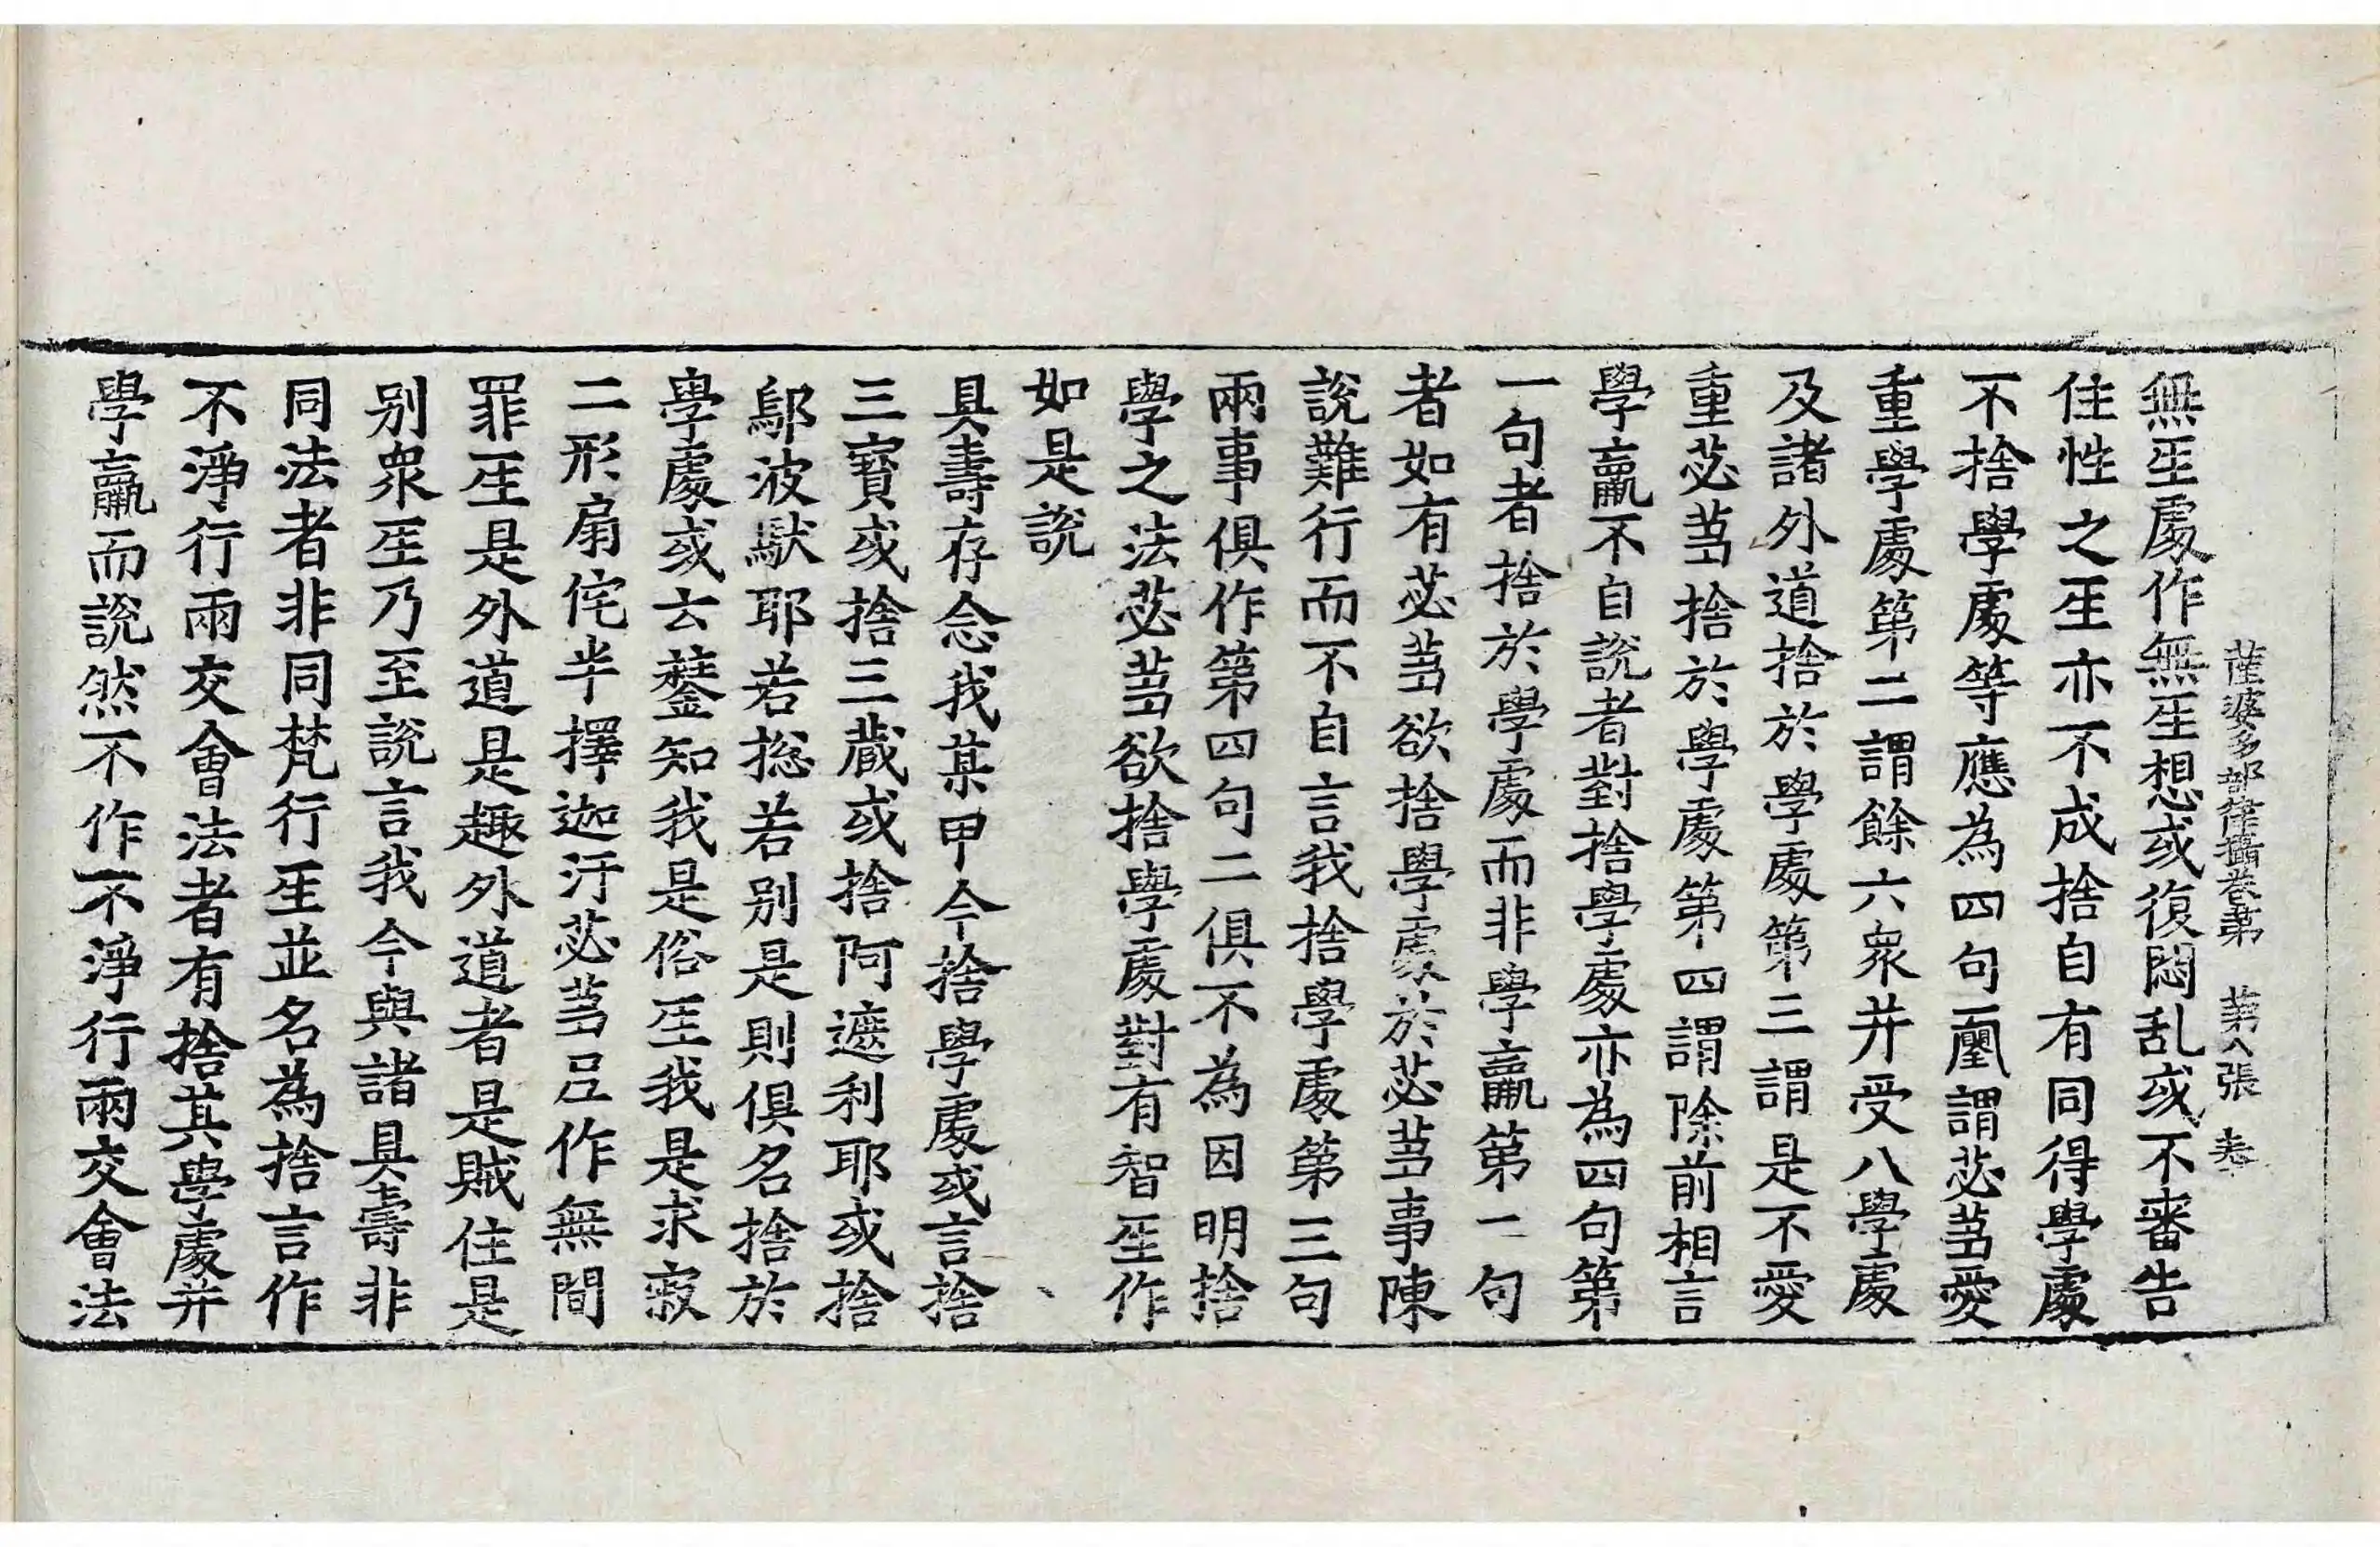 薩婆多部律攝卷第　第八張　
無𤯔處作無𤯔想或復悶乱或不審告
住性之𤯔亦不成捨自有同得學處
不捨學處等應為四句謂苾芻愛
重學處第二謂餘六衆并受八學處
及諸外道捨於學處第三謂是不愛
重苾芻捨於學處第四謂除前相言
學羸不自說者對捨學處亦為四句第
一句者捨於學處而非學羸第二句
者如有苾芻欲捨學處於苾芻事陳
說難行而不自言我捨學處第三句
兩事俱作第四句二俱不為因明捨
學之法苾芻欲捨學處對有智𤯔作
如是說
具壽存念我某甲今捨學處或言捨
三寳或捨三蔵或捨阿遮利耶或捨
鄔波馱耶若捴若别是則俱名捨於
學處或云知我是俗𤯔我是求寂
二形扇侘半擇迦汙苾芻𠯁作無間
罪𤯔是外道是趣外道者是賊住是
别衆𤯔乃至說言我今與諸具壽非
同法者非同梵行𤯔並名為捨言作
不淨行兩交會法者有捨其學處并
學羸而說然不作不淨行兩交會法